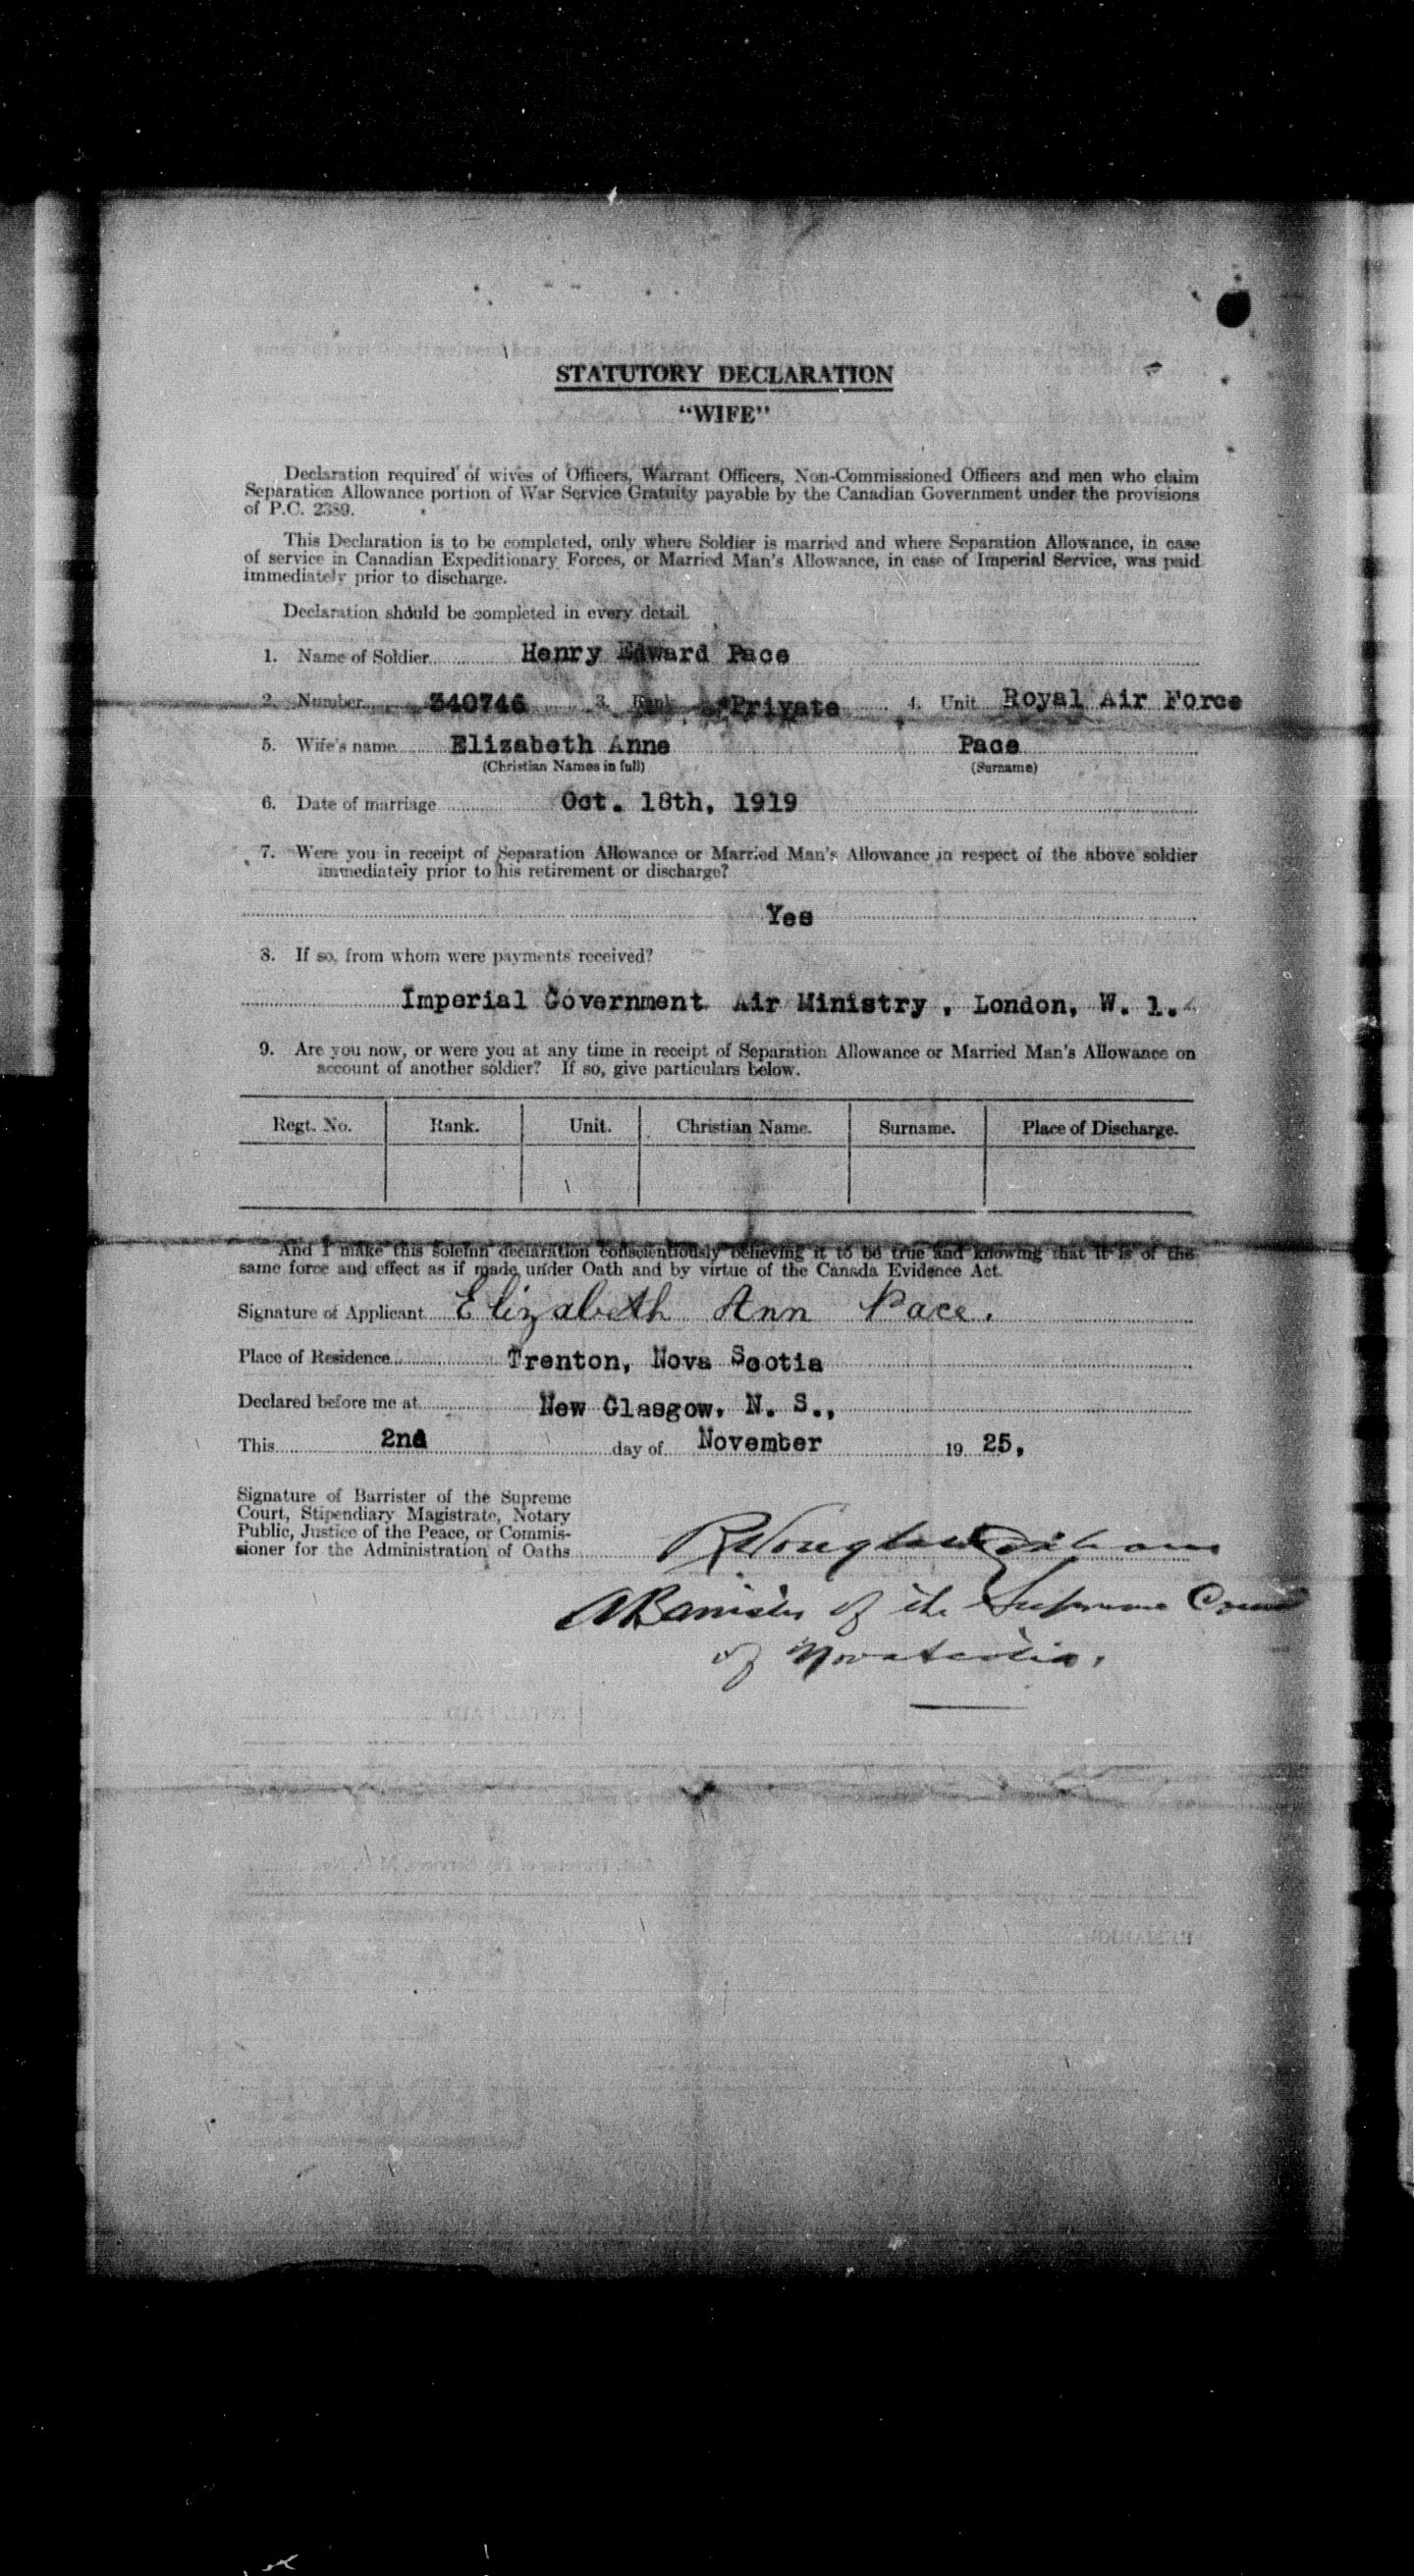 STATUTORY DECLARATION
"WIFE"
Declaration required of wives of Officers, Warrant Officers, Non-Commissioned Officers and men who claim
Separation Allowance portion of War Service Gratuity payable by the Canadian Government under the provisions
of P.C. 2389.
This Declaration is to be completed, only where Soldier is married and where Separation Allowance, in case
of service in Canadian Expeditionary Forces, or Married Man's Allowance, in case of Imperial Service, was paid
immediately prior to discharge.
Declaration should be completed in every detail.
1. Name of Soldier Henry Edward Pace
2. Number 340746 3. Rank Private 4. Unit Royal Air Force
5. Wife's name Elizabeth Anne Pace
(Christian Names in full) (Surname)
6. Date of marriage Oct. 18th, 1919
7. Were you in receipt of Separation Allowance or Married Man's Allowance in respect of the above soldier
immediately prior to his retirement or discharge?
Yes
8. If so, from whom were payments received?
Imperial Government Air Ministry , London, W. 1.
9. Are you now, or were you at any time in receipt of Separation Allowance or Married Man's Allowance on
account of another soldier? If so, give particulars below.
Regt. No. Rank. Unit. Christian Name. Surname. Place of Discharge.
And I make this solemn declaration conscientiously believing it to be true and knowing that it is of the
same force and effect as if made under Oath and by virtue of the Canada Evidence Act.
Signature of Applicant Elizabeth Ann Pace.
Place of Residence Trenton, Nova Scotia
Declared before me at New Glasgow, N. S.,
This 2nd day of November 19 25,
Signature of Barrister of the Supreme
Court, Stipendiary Magistrate, Notary
Public, Justice of the Peace, or Commis-
sioner for the Administration of Oaths
A Barrister of the Supreme Court
of Nova Scotia.